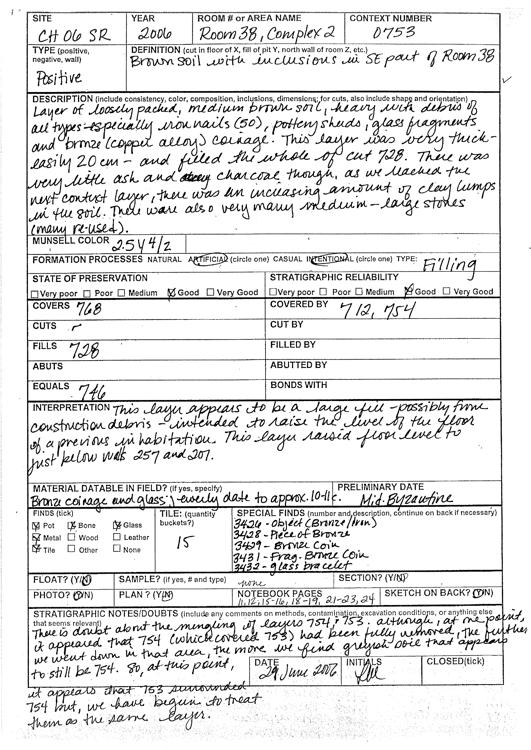 SITE YEAR ROOM # OR AREA NAME CONTEXT NUMBER
CH 06 SR 2006 Room 38, Complex 2 0753
TYPE (positive, negative, wall) DEFINITION (cut in floor of X, fill of pit Y, north wall of room Z, etc.)
Positive Brown soil with inclusions in SE part of Room 38
DESCRIPTION (include consistency, color, composition, inclusions, dimensions; for cuts, also include shape and orientation)
Layer of loosely packed, medium brown soil, heavy with debris of
all types - especially iron nails (50), pottery sherds, glass fragments
and bronze (copper alloy) coinage. This layer was very thick -
easily 20 cm - and filled the whole of cut 728. There was
very little ash and charcoal though, as we reached the
next context layer, there was an increasing amount of clay lumps
in the soil. There were also very many medium - large stones
(many re-used).
MUNSELL COLOR 2.5Y 4/2
FORMATION PROCESSES NATURAL ARTIFICIAL (circle one) CASUAL INTENTIONAL (circle one) TYPE: Filling
STATE OF PRESERVATION STRATIGRAPHIC RELIABILITY
Very poor Poor Medium Good Very Good Very poor Poor Medium Good Very Good
COVERS 768 COVERED BY 712, 754
CUTS CUT BY
FILLS 728 FILLED BY
ABUTS ABUTTED BY
EQUALS 746 BONDS WITH
INTERPRETATION This layer appears to be a large fill - possibly from
construction debris - intended to raise the level of the floor
of a previous inhabitation. This layer raised floor level to
just below 257 and 207.
MATERIAL DATABLE IN FIELD? (if yes, specify) PRELIMINARY DATE
Bronze coinage and glass date to approx. 10-11 c. Mid. Byzantine
FINDS (tick) TILE: (quantity buckets?) SPECIAL FINDS (number and description, continue on back if necessary)
Pot Bone Glass 3426 - Object (Bronze/Iron)
Metal Wood Leather 15 3428 - Piece of Bronze
Tile Other None 3429 - Bronze Coin
3431 - Frag. Bronze Coin
3432 - glass bracelet
FLOAT? (Y/N) SAMPLE? (if yes, # and type) none SECTION? (Y/N)
PHOTO? (Y/N) PLAN? (Y/N) NOTEBOOK PAGES 11, 12, 15-16, 18-19, 21-23, 24 SKETCH ON BACK? (Y/N)
STRATIGRAPHIC NOTES/DOUBTS (include any comments on methods, contamination, excavation conditions, or anything else that seems relevant)
There is doubt about the mingling of layers 754 & 753. although, at one point,
it appeared that 754 (which covered 753) had been fully removed, the further
we went down in that area, the more we find greyish soil that appears
to still be 754. So, at this point,
DATE 29 June 2006 INITIALS CLOSED(tick)
it appears that 753 surrounded
754 but, we have begun to treat
them as the same layer.